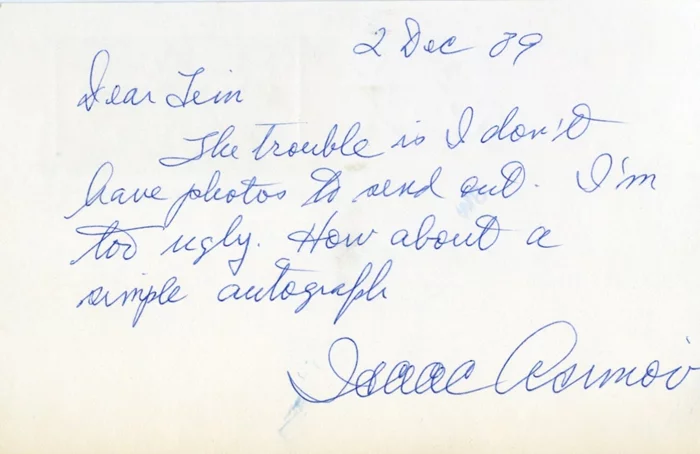 2 Dec 89
Dear Tein
The trouble is I don't
have photos to send out. I'm
too ugly. How about a
simple autograph
Isaac Asimov